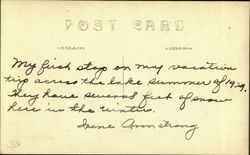 POST CARD
My first stop on my vacation
trip across the lake summer of 1929.
They have several feet of snow
here in the winter.
Irene Armstrong